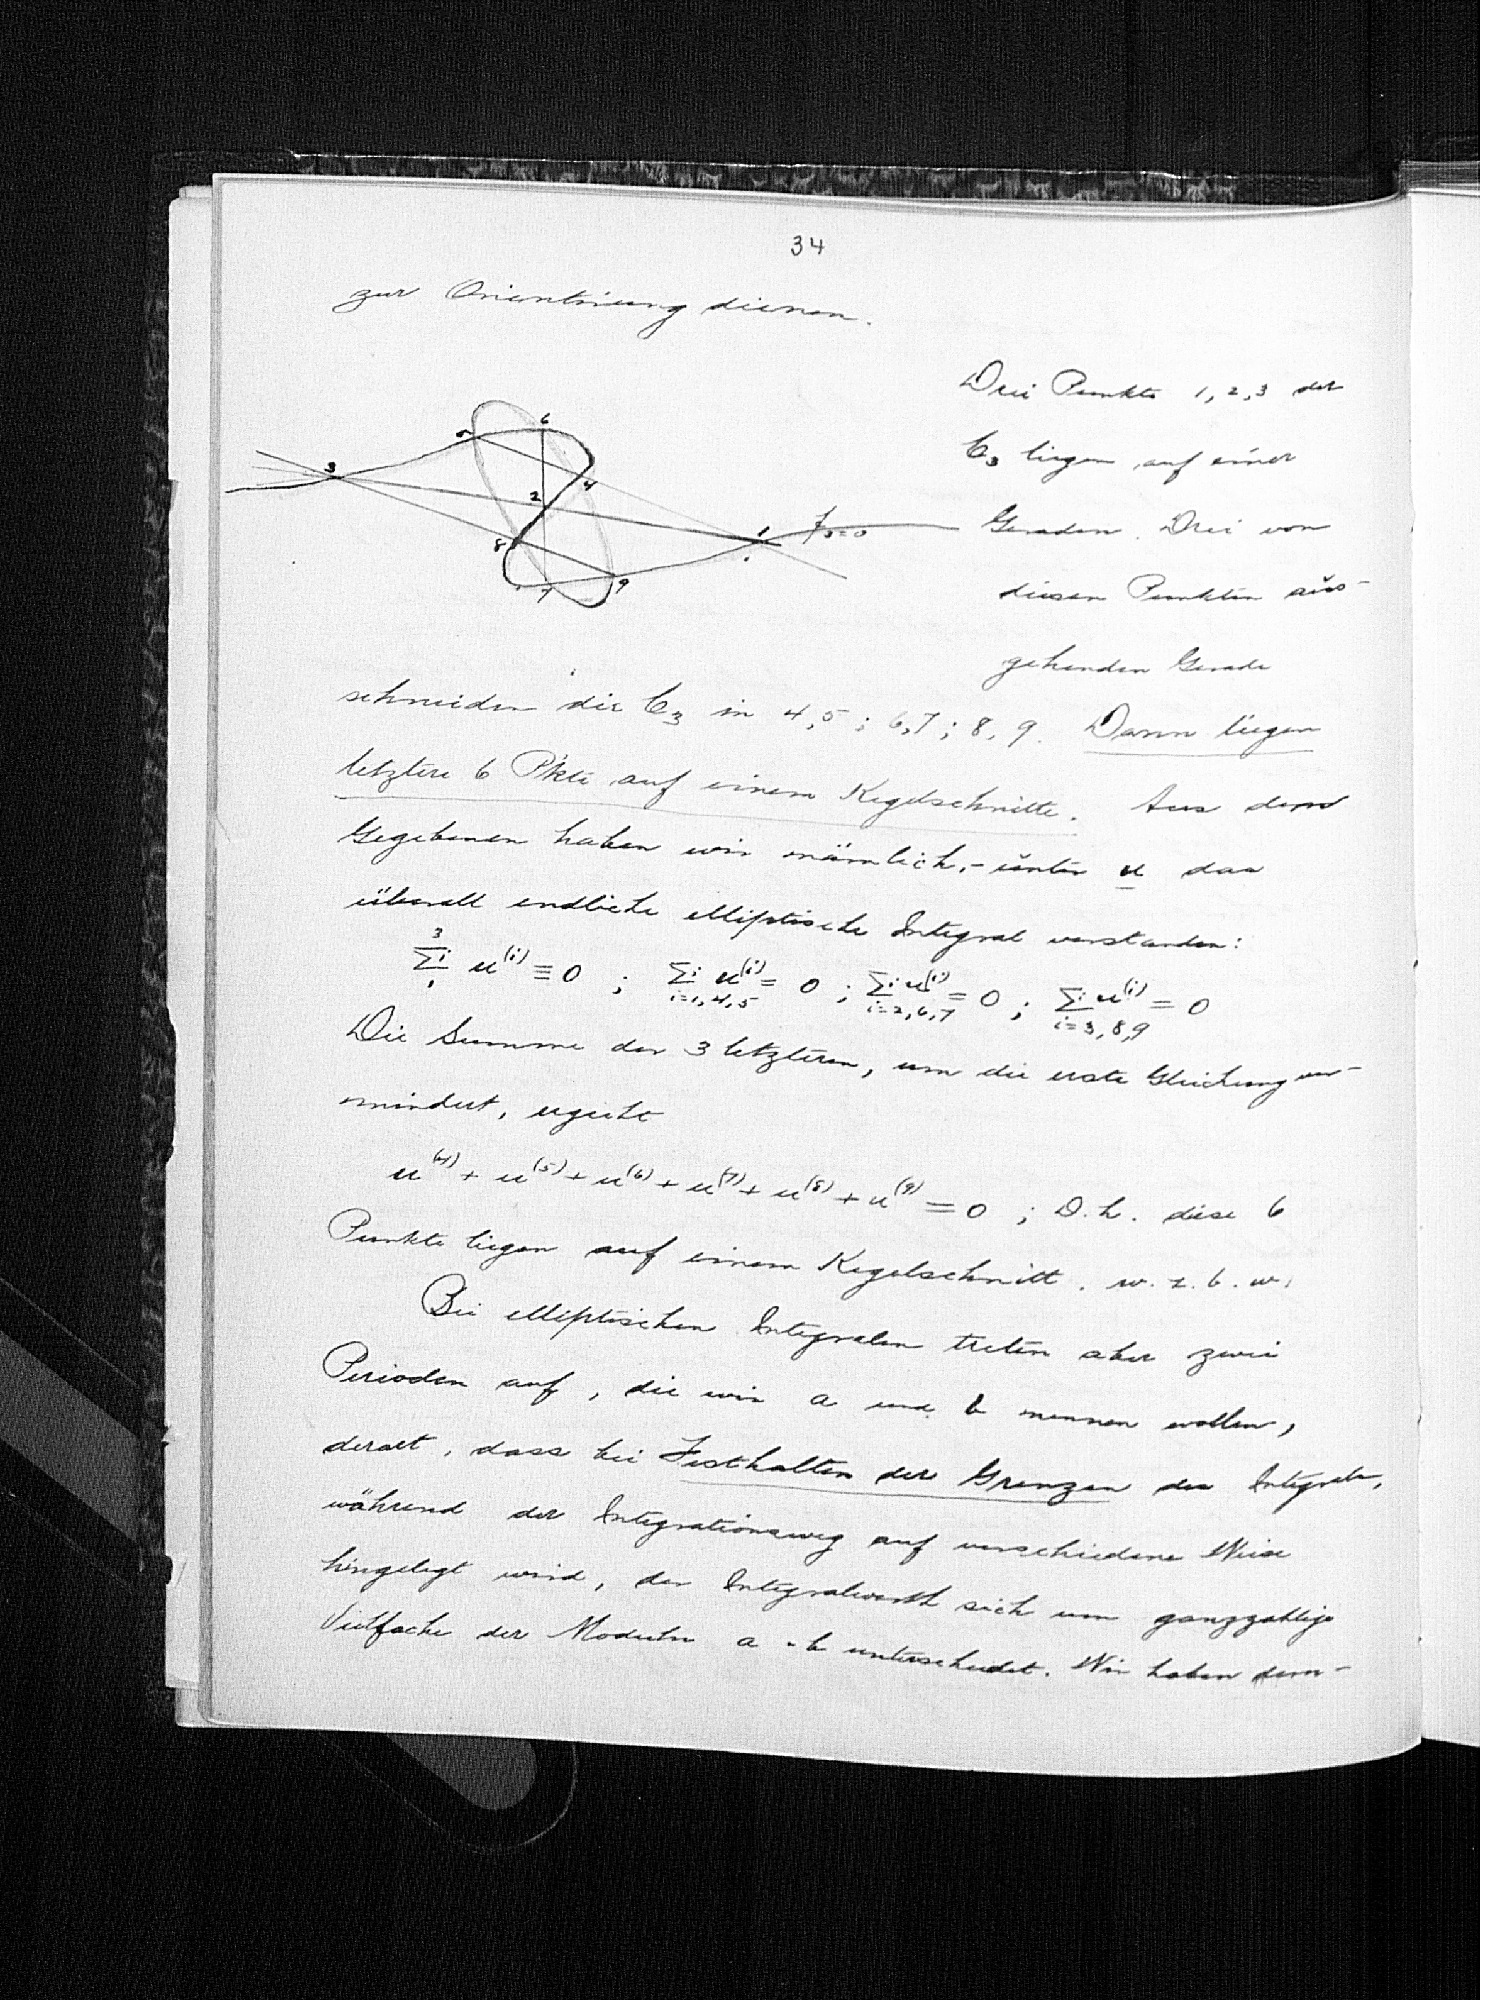 34
zur Orientirung dienen.
Drei Punkte 1, 2, 3 der
C₃ liegen auf einer
Geraden. Drei von
diesen Punkten aus-
gehenden Gerade
3 5 6 4 2 8 7 9 1 f₃=0
schneiden die C₃ in 4,5; 6,7; 8, 9. Dann liegen
letztere 6 Pkte auf einem Kegelschnitte. Aus dem
Gegebenen haben wir nämlich, - unter u das
überall endliche elliptische Integral verstanden:
3∑i1 u⁽ⁱ⁾ ≡ 0 ; ∑i u⁽ⁱ⁾ = 0 i=1,4,5 ; ∑i u⁽ⁱ⁾ = 0 i=2,6,7 ; ∑i u⁽ⁱ⁾ = 0 i=3,8,9
Die Summe der 3 letzteren, um die erste Gleichung ver-
mindert, ergiebt
u⁽⁴⁾ + u⁽⁵⁾ + u⁽⁶⁾ + u⁽⁷⁾ + u⁽⁸⁾ + u⁽⁹⁾ = 0 ; D.h. diese 6
Punkte liegen auf einem Kegelschnitt. w. z. b. w.
Bei elliptischen Integralen treten aber zwei
Perioden auf, die wir a und b nennen wollen,
derart, dass bei Festhalten der Grenzen des Integrals,
während der Integrationsweg auf verschiedene Weise
hingelegt wird, der Integralwerth sich um ganzzahlige
Vielfache der Moduln a · b unterscheidet. Wir haben dem-